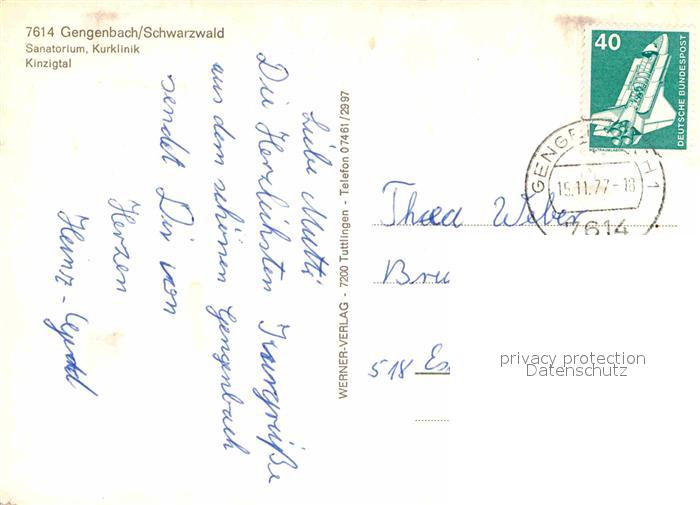 7614 Gengenbach/Schwarzwald
Sanatorium, Kurklinik
Kinzigtal
Liebe Mutti
Die Herzlichsten Kurgrüße
aus dem schönen Gengenbach
sendet Dir von
Herzen
Heinz-
WERNER-VERLAG - 7200 Tuttlingen - Telefon 07461/2997
40
DEUTSCHE BUNDESPOST
15.11.77-18
7614
Thea Weber
Bru
518 Es
privacy protection
Datenschutz